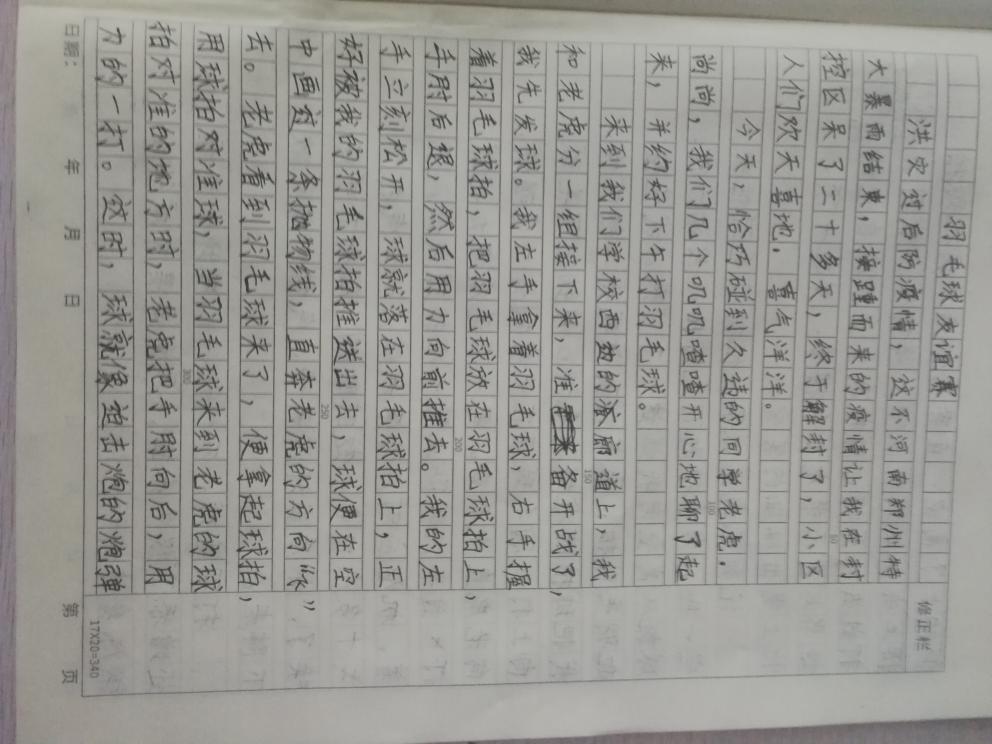 羽毛球友谊赛
洪灾过后防疫情,这不河南郑州特
大暴雨结束,接踵而来的疫情让我在封
控区呆了二十多天,终于解封了,小区
人们欢天喜地,喜气洋洋。
今天,恰巧碰到久违的同学老虎.
尚尚,我们几个叽叽喳喳开心地聊了起
来,并约好下午打羽毛球。
来到我们学校西边的道上,我
和老虎分一组接下来,准备开战了,
我先发球。我左手拿着羽毛球,右手握
着羽毛球拍,把羽毛球放在羽毛球拍上,
手肘后退,然后用力向前推去。我的左
手立刻松开,球就落在羽毛球拍上,正
好被我的羽毛球拍推送出去,球便在空
中画过一条抛物线,直奔老虎的方向"
去。老虎看到羽毛球来了,便拿起球拍,
用球拍对准球,当羽毛球来到老虎的球
拍对准的地方时,老虎把手肘向后,用
力的一打。这时,球就像迫击炮的炮弹
修正栏
50
100
150
200
250
300
17X20=340
日期: 年 月 日 第 页